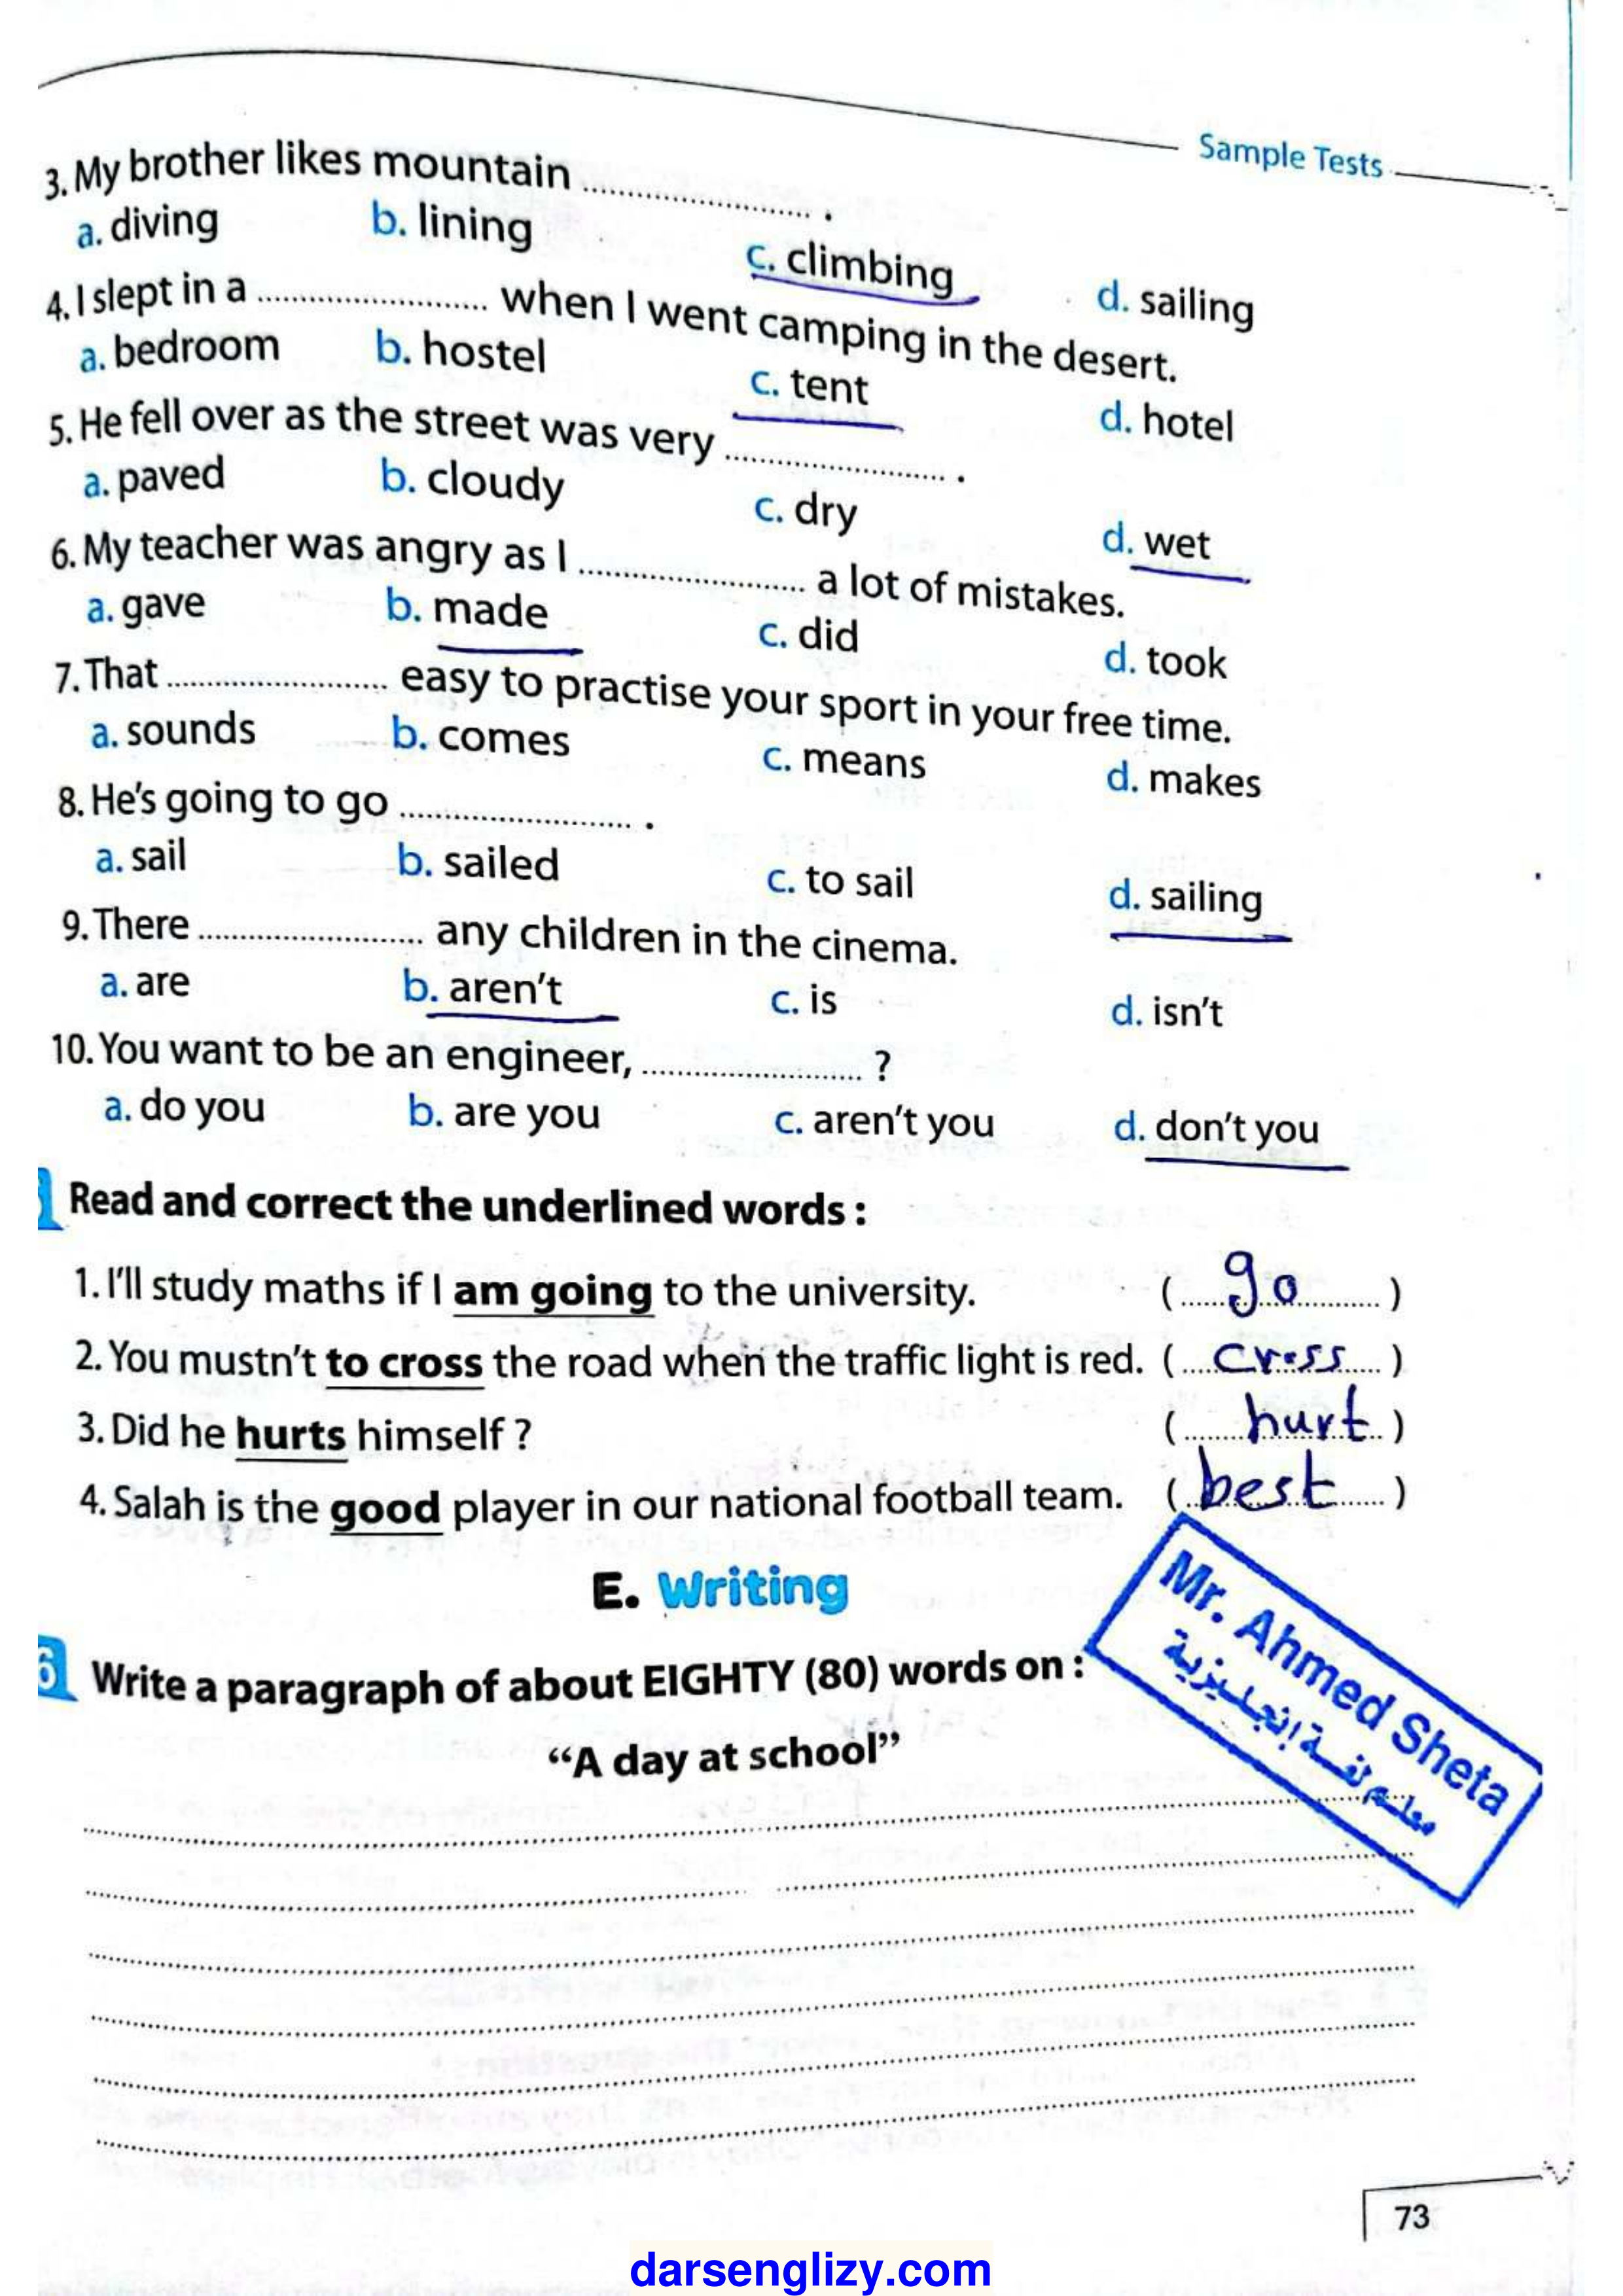 Sample Tests
3. My brother likes mountain .............................. .
a. diving b. lining c. climbing d. sailing
4. I slept in a .............................. when I went camping in the desert.
a. bedroom b. hostel c. tent d. hotel
5. He fell over as the street was very .............................. .
a. paved b. cloudy c. dry d. wet
6. My teacher was angry as I .............................. a lot of mistakes.
a. gave b. made c. did d. took
7. That .............................. easy to practise your sport in your free time.
a. sounds b. comes c. means d. makes
8. He's going to go .............................. .
a. sail b. sailed c. to sail d. sailing
9. There .............................. any children in the cinema.
a. are b. aren't c. is d. isn't
10. You want to be an engineer, .............................. ?
a. do you b. are you c. aren't you d. don't you
Read and correct the underlined words :
1. I'll study maths if I am going to the university. (...... go ......)
2. You mustn't to cross the road when the traffic light is red. (.... cross ....)
3. Did he hurts himself ? (...... hurt ..)
4. Salah is the good player in our national football team. (.. best ......)
E. Writing
6 Write a paragraph of about EIGHTY (80) words on :
"A day at school"
Mr. Ahmed Sheta
معلم لغة إنجليزية
73
darsenglizy.com